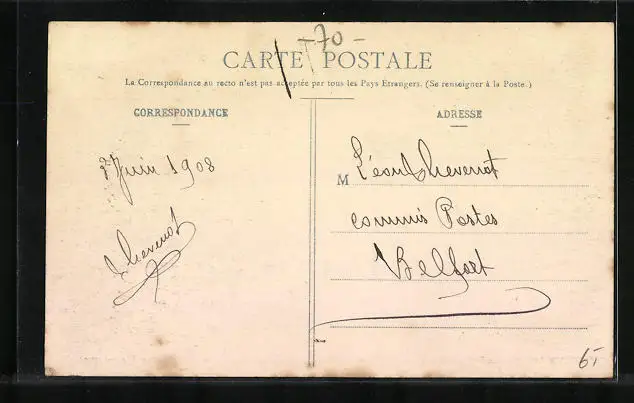 -70-
CARTE POSTALE
La Correspondance au recto n'est pas acceptée par tous les Pays Etrangers. (Se renseigner à la Poste.)
CORRESPONDANCE
3 Juin 1908
Thevenot
ADRESSE
M Léon Thevenot
commis Postes
Belfort
6-